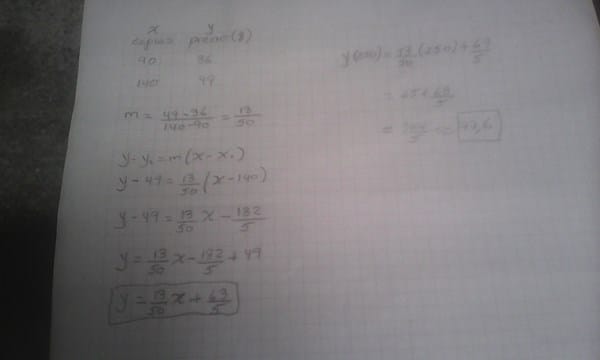 x y
copias precio ($)
90 36
140 49
m = 49-36/140-90 = 13/50
y-y₁=m(x-x₁)
y-49=13/50(x-140)
y-49=13/50x-182/5
y=13/50x-182/5+49
y=13/50x+63/5
y(250)=13/50(250)+63/5
=65+63/5